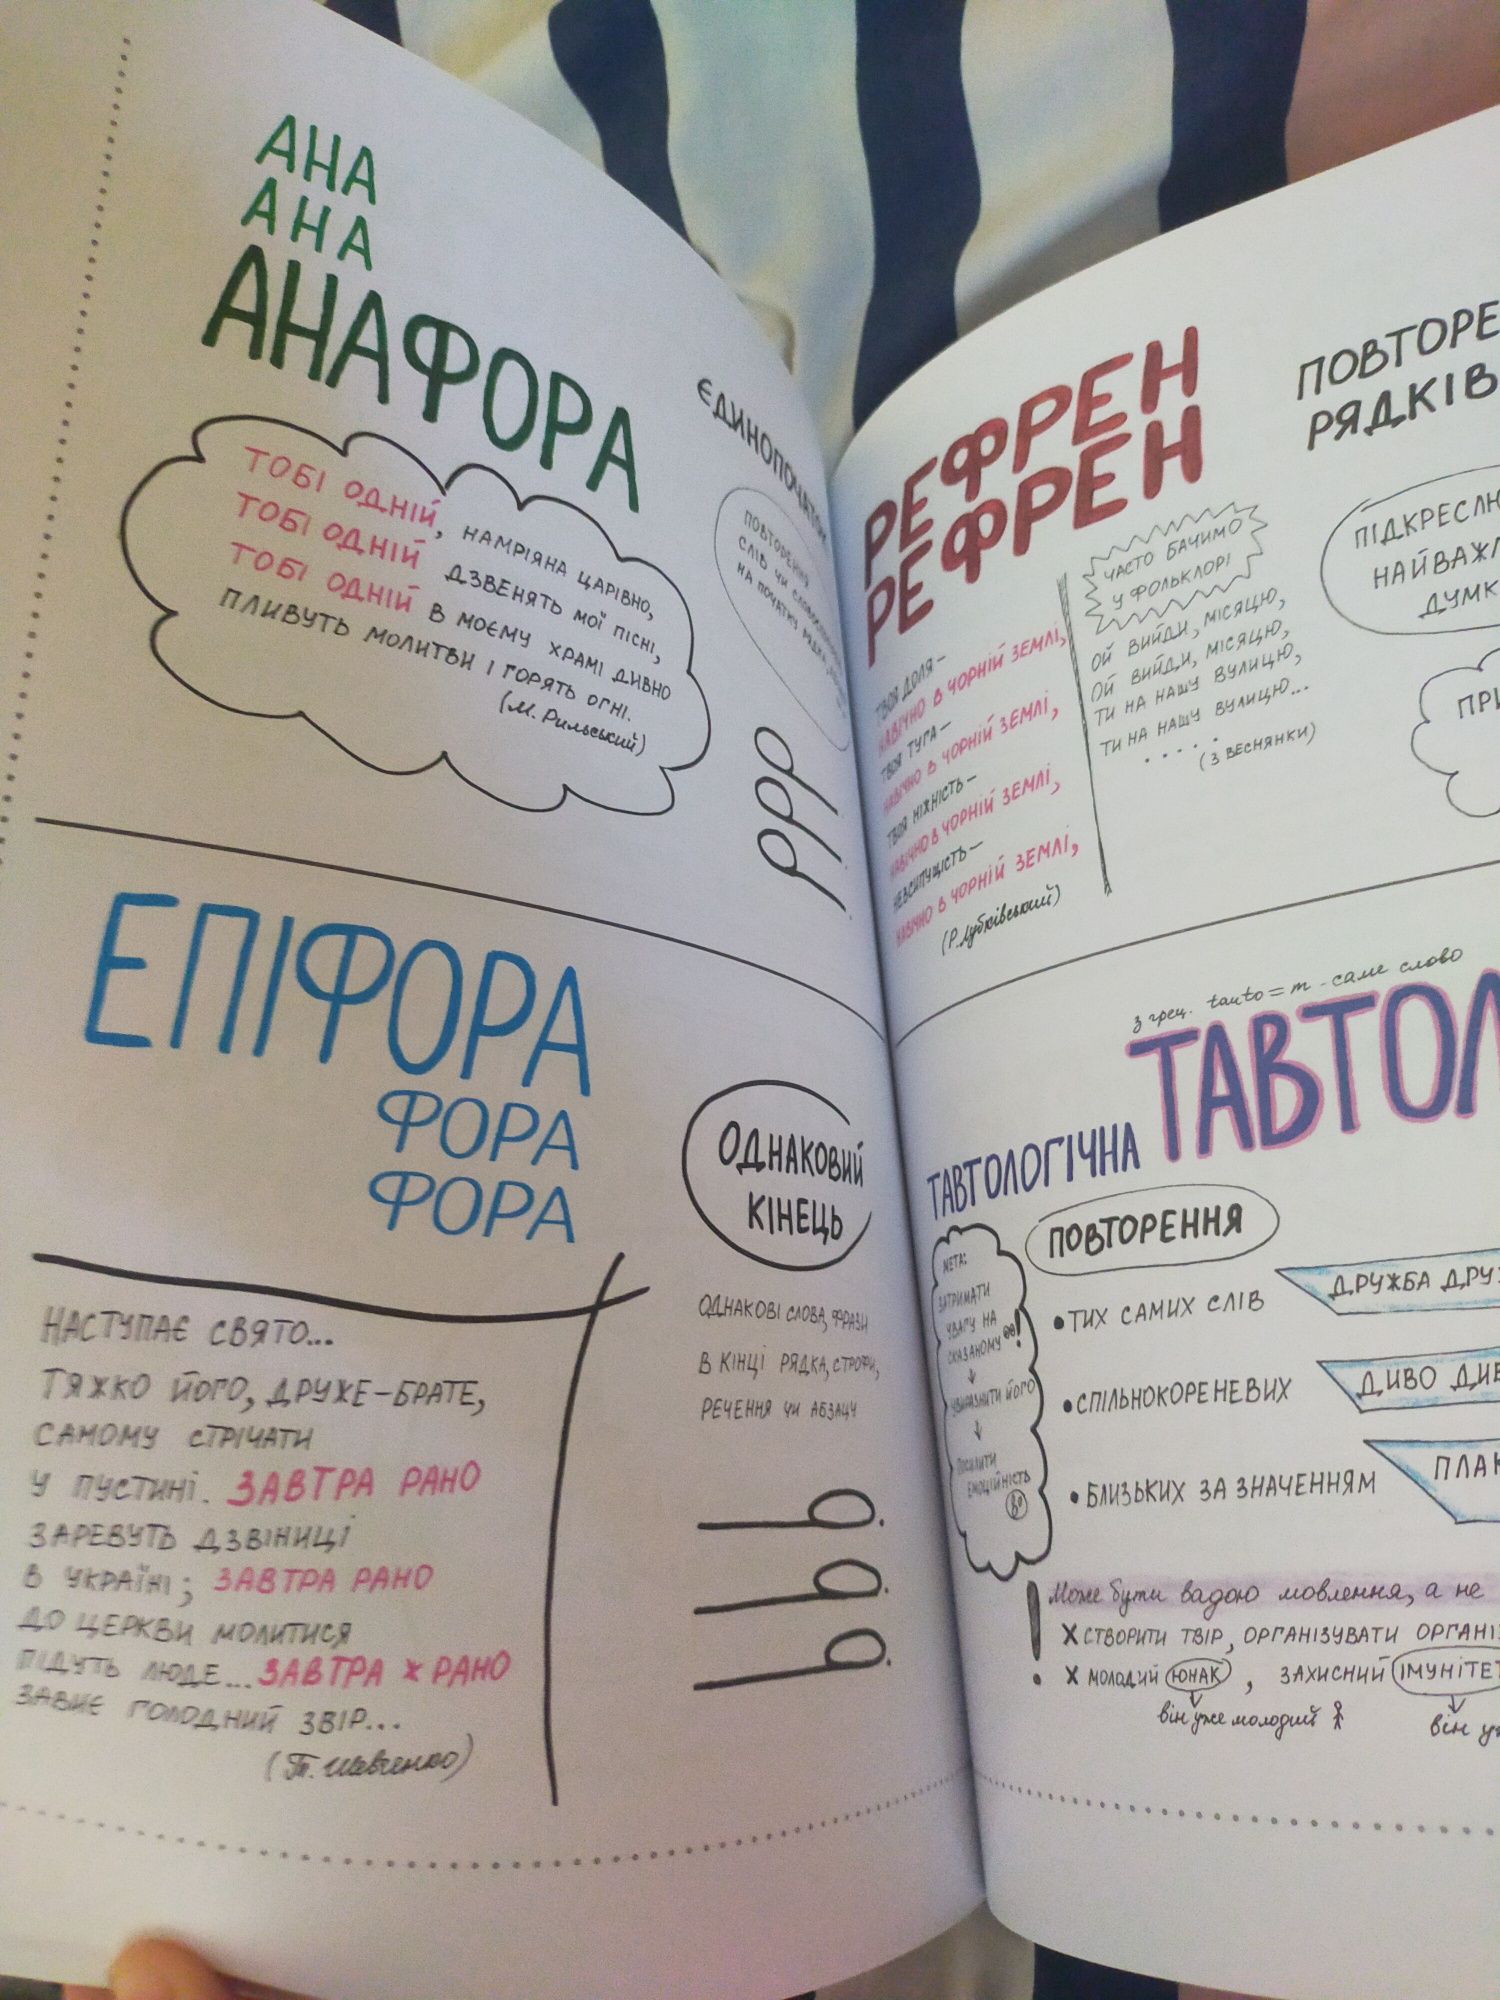 АНА
АНА
АНАФОРА
ЄДИНОПОЧАТОК
ТОБІ ОДНІЙ, НАМРІЯНА ЦАРІВНО,
ТОБІ ОДНІЙ ДЗВЕНЯТЬ МОЇ ПІСНІ,
ТОБІ ОДНІЙ В МОЄМУ ХРАМІ ДИВНО
ПЛИВУТЬ МОЛИТВИ І ГОРЯТЬ ОГНІ.
(М. Рильський)
ПОВТОРЕННЯ
СЛІВ ЧИ
НА ПОЧАТКУ РЯДКА,
ЕПІФОРА
ФОРА
ФОРА
ОДНАКОВИЙ
КІНЕЦЬ
ОДНАКОВІ СЛОВА, ФРАЗИ
В КІНЦІ РЯДКА, СТРОФИ,
РЕЧЕННЯ ЧИ АБЗАЦУ
НАСТУПАЄ СВЯТО...
ТЯЖКО ЙОГО, ДРУЖЕ-БРАТЕ,
САМОМУ СТРІЧАТИ
У ПУСТИНІ. ЗАВТРА РАНО
ЗАРЕВУТЬ ДЗВІНИЦІ
В УКРАЇНІ; ЗАВТРА РАНО
ДО ЦЕРКВИ МОЛИТИСЯ
ПІДУТЬ ЛЮДЕ... ЗАВТРА Ж РАНО
ЗАВИЄ ГОЛОДНИЙ ЗВІР...
(Т. Шевченко)
РЕФРЕН
РЕФРЕН
ПОВТОРЕ
РЯДКІВ
ТВОЯ ДОЛЯ –
НАВІЧНО В ЧОРНІЙ ЗЕМЛІ,
ТВОЯ ТУГА –
НАВІЧНО В ЧОРНІЙ ЗЕМЛІ,
ТВОЯ НІЖНІСТЬ –
НАВІЧНО В ЧОРНІЙ ЗЕМЛІ,
НЕВСИПУЩІСТЬ –
НАВІЧНО В ЧОРНІЙ ЗЕМЛІ,
(Р. Лубківський)
ЧАСТО БАЧИМО
У ФОЛЬКЛОРІ
ОЙ ВИЙДИ, МІСЯЦЮ,
ОЙ ВИЙДИ, МІСЯЦЮ,
ТИ НА НАШУ ВУЛИЦЮ,
ТИ НА НАШУ ВУЛИЦЮ...
.....
(З ВЕСНЯНКИ)
ПІДКРЕСЛЮ
НАЙВАЖЛ
ДУМК
ПРИ
з грец. tauto = т-саме слово
ТАВТОЛ
ТАВТОЛОГІЧНА
ПОВТОРЕННЯ
МЕТА:
ЗАТРИМАТИ
УВАГУ НА
СКАЗАНОМУ !
↓
УВИРАЗНИТИ ЙОГО
↓
ПОСИЛИТИ
ЕМОЦІЙНІСТЬ
• ТИХ САМИХ СЛІВ
ДРУЖБА ДРУЖ
• СПІЛЬНОКОРЕНЕВИХ
ДИВО ДИВ
• БЛИЗЬКИХ ЗА ЗНАЧЕННЯМ
ПЛАК
! Може бути вадою мовлення, а не
X СТВОРИТИ ТВІР, ОРГАНІЗУВАТИ ОРГАНІЗ
X МОЛОДИЙ ЮНАК, ЗАХИСНИЙ ІМУНІТЕТ
він уже молодий
він у